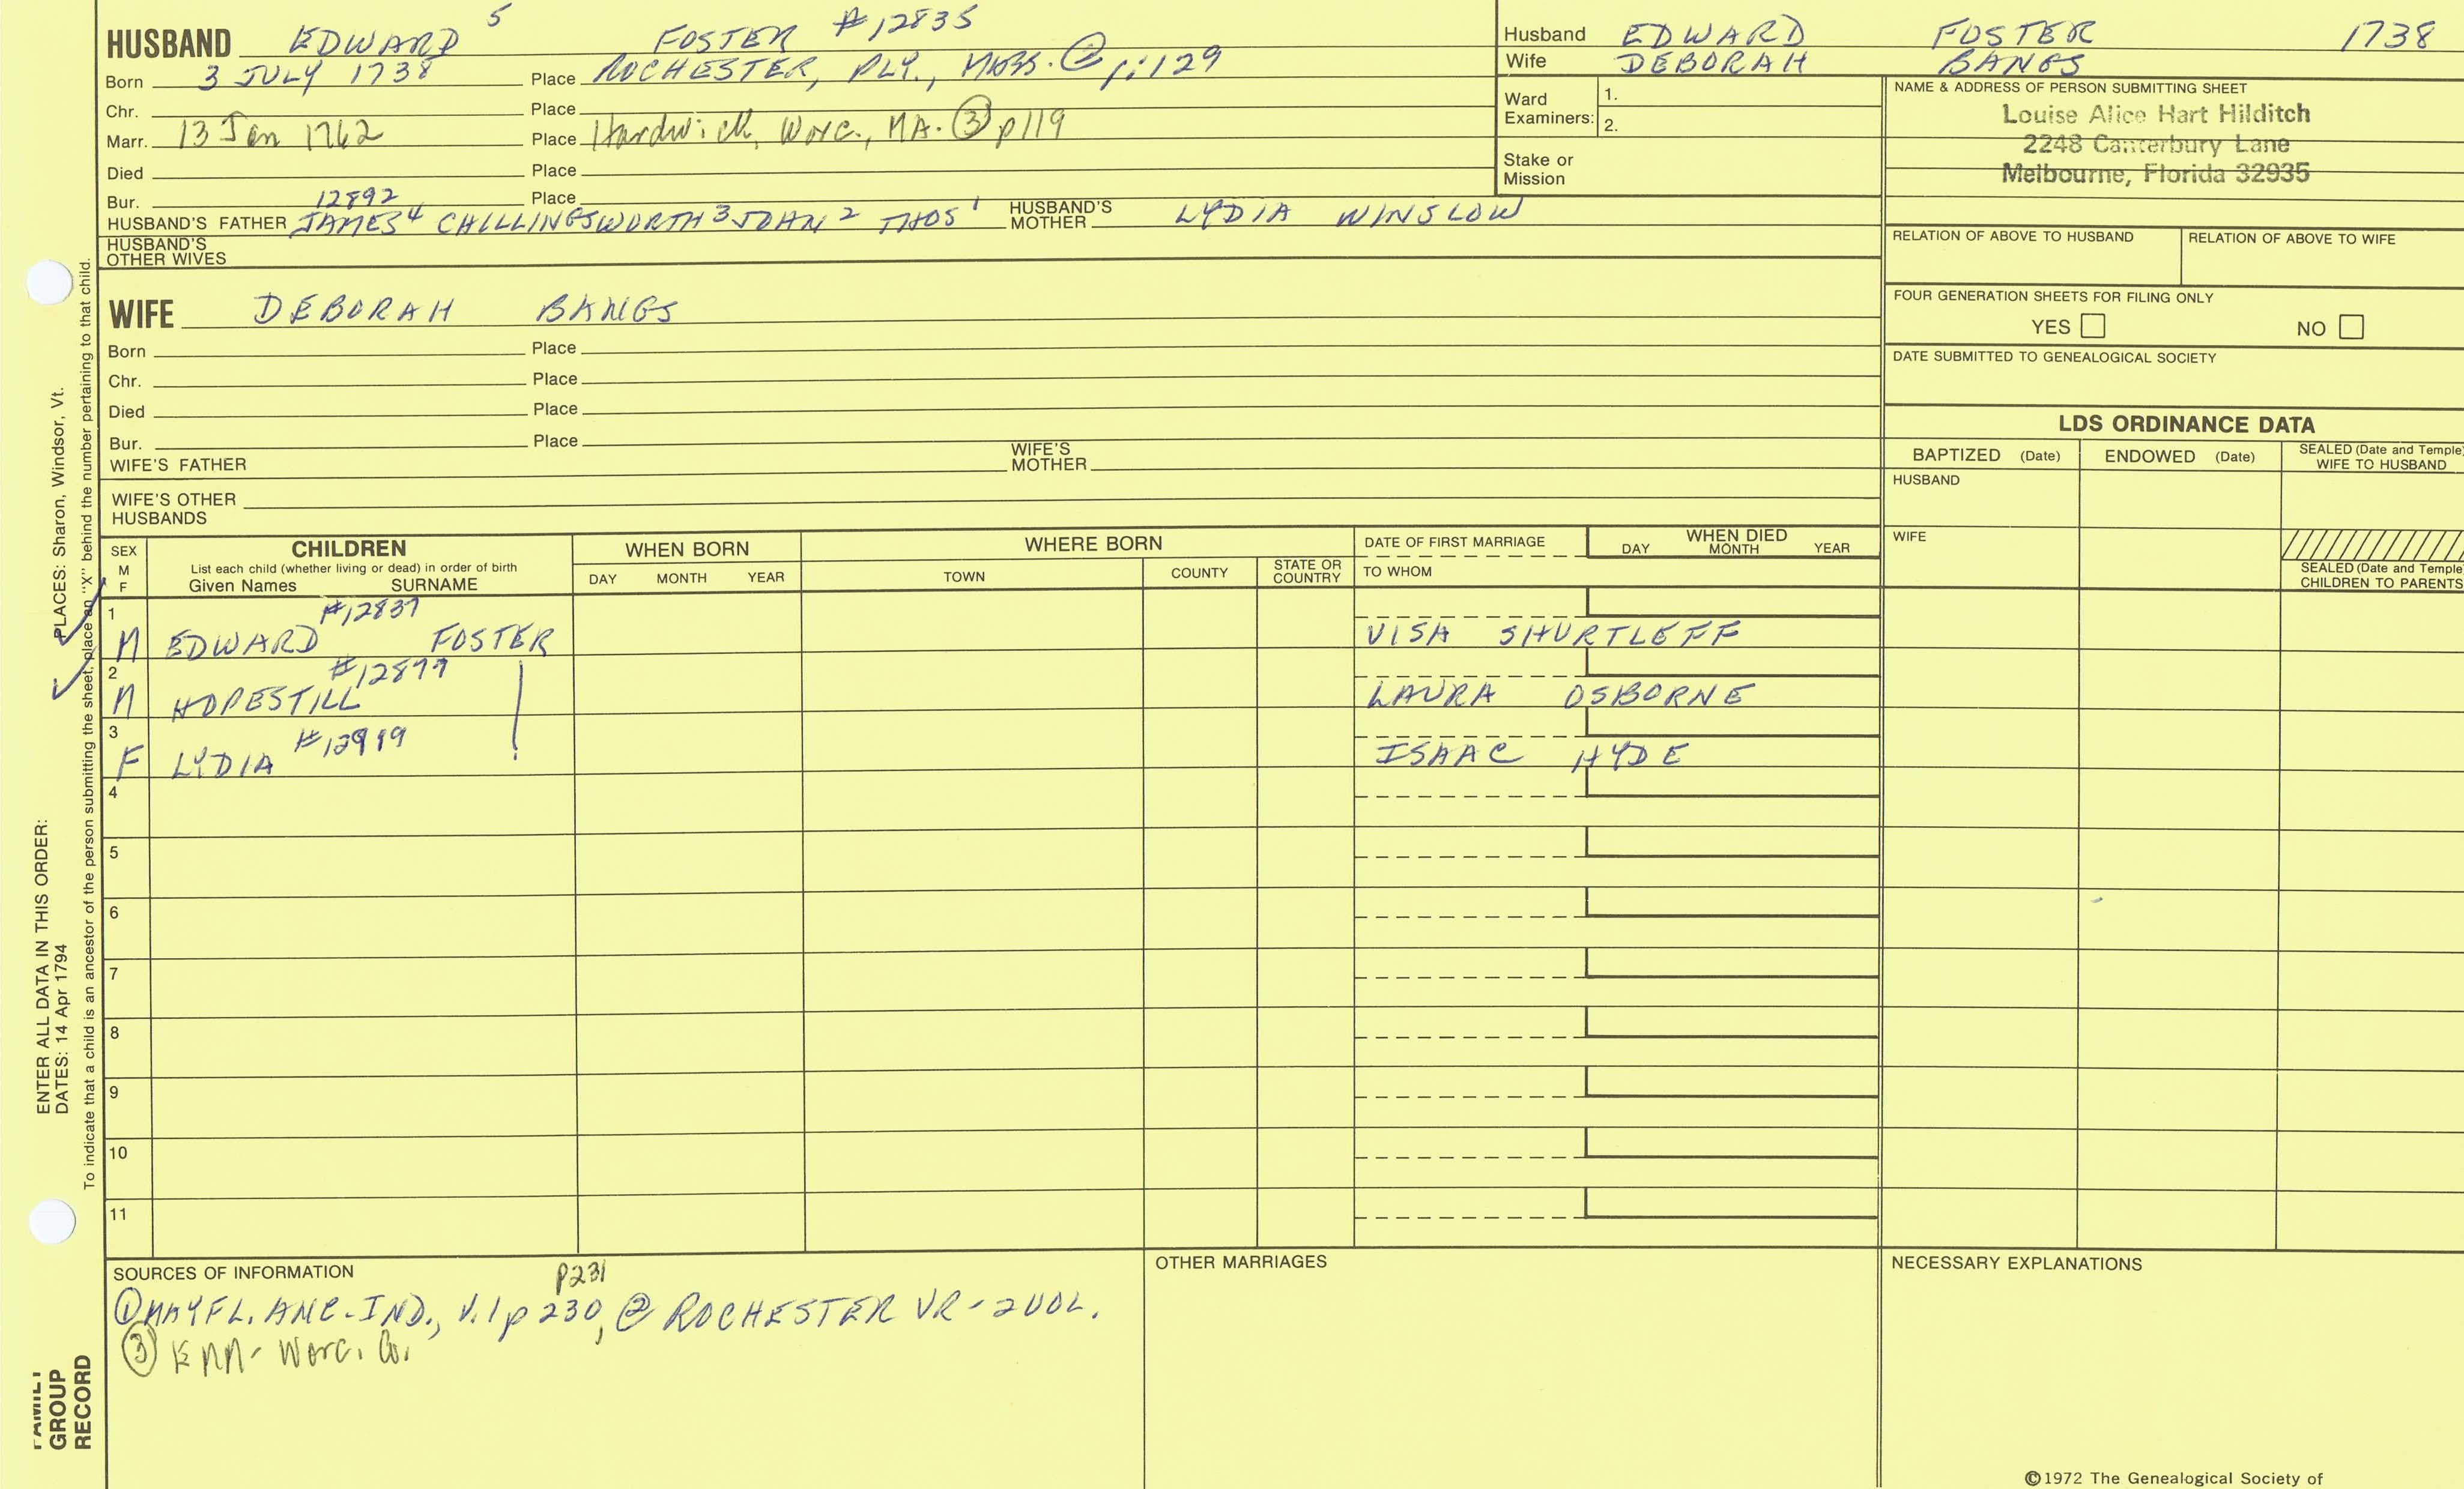 HUSBAND EDWARD 5 FOSTER #12835
Born 3 JULY 1738 Place ROCHESTER, PLY., MASS. ② p:129
Chr. Place
Marr. 13 Jan 1762 Place Hardwick, Worc., MA. ③ p119
Died Place
Bur. Place
12892
HUSBAND'S FATHER JAMES 4 CHILLINGSWORTH 3 JOHN 2 THOS 1 HUSBAND'S MOTHER LYDIA WINSLOW
HUSBAND'S OTHER WIVES
Husband EDWARD FOSTER 1738
Wife DEBORAH BANGS
Ward Examiners: 1.
2.
Stake or Mission
NAME & ADDRESS OF PERSON SUBMITTING SHEET
Louise Alice Hart Hilditch
2248 Canterbury Lane
Melbourne, Florida 32935
RELATION OF ABOVE TO HUSBAND RELATION OF ABOVE TO WIFE
FOUR GENERATION SHEETS FOR FILING ONLY
YES NO
DATE SUBMITTED TO GENEALOGICAL SOCIETY
WIFE DEBORAH BANGS
Born Place
Chr. Place
Died Place
Bur. Place
WIFE'S FATHER WIFE'S MOTHER
WIFE'S OTHER HUSBANDS
LDS ORDINANCE DATA
BAPTIZED (Date) ENDOWED (Date) SEALED (Date and Temple) WIFE TO HUSBAND
HUSBAND
WIFE
SEALED (Date and Temple) CHILDREN TO PARENTS
SEX M F CHILDREN List each child (whether living or dead) in order of birth Given Names SURNAME
WHEN BORN DAY MONTH YEAR
WHERE BORN TOWN COUNTY STATE OR COUNTRY
DATE OF FIRST MARRIAGE TO WHOM
WHEN DIED DAY MONTH YEAR
1 #12837
M EDWARD FOSTER VISA SHURTLEFF
2
M HOPESTILL LAURA OSBORNE
3
F LYDIA ISAAC HYDE
4
5
6
7
8
9
10
11
SOURCES OF INFORMATION
P231
① MAYFL. ANC-IND., V.1 p 230, ② ROCHESTER VR - 2VOL.
③ Worc. Co.
OTHER MARRIAGES
NECESSARY EXPLANATIONS
©1972 The Genealogical Society of
FAMILY GROUP RECORD
ENTER ALL DATA IN THIS ORDER:
DATES: 14 Apr 1794 PLACES: Sharon, Windsor, Vt.
To indicate that a child is an ancestor of the person submitting the sheet, place an "X" behind the number pertaining to that child.